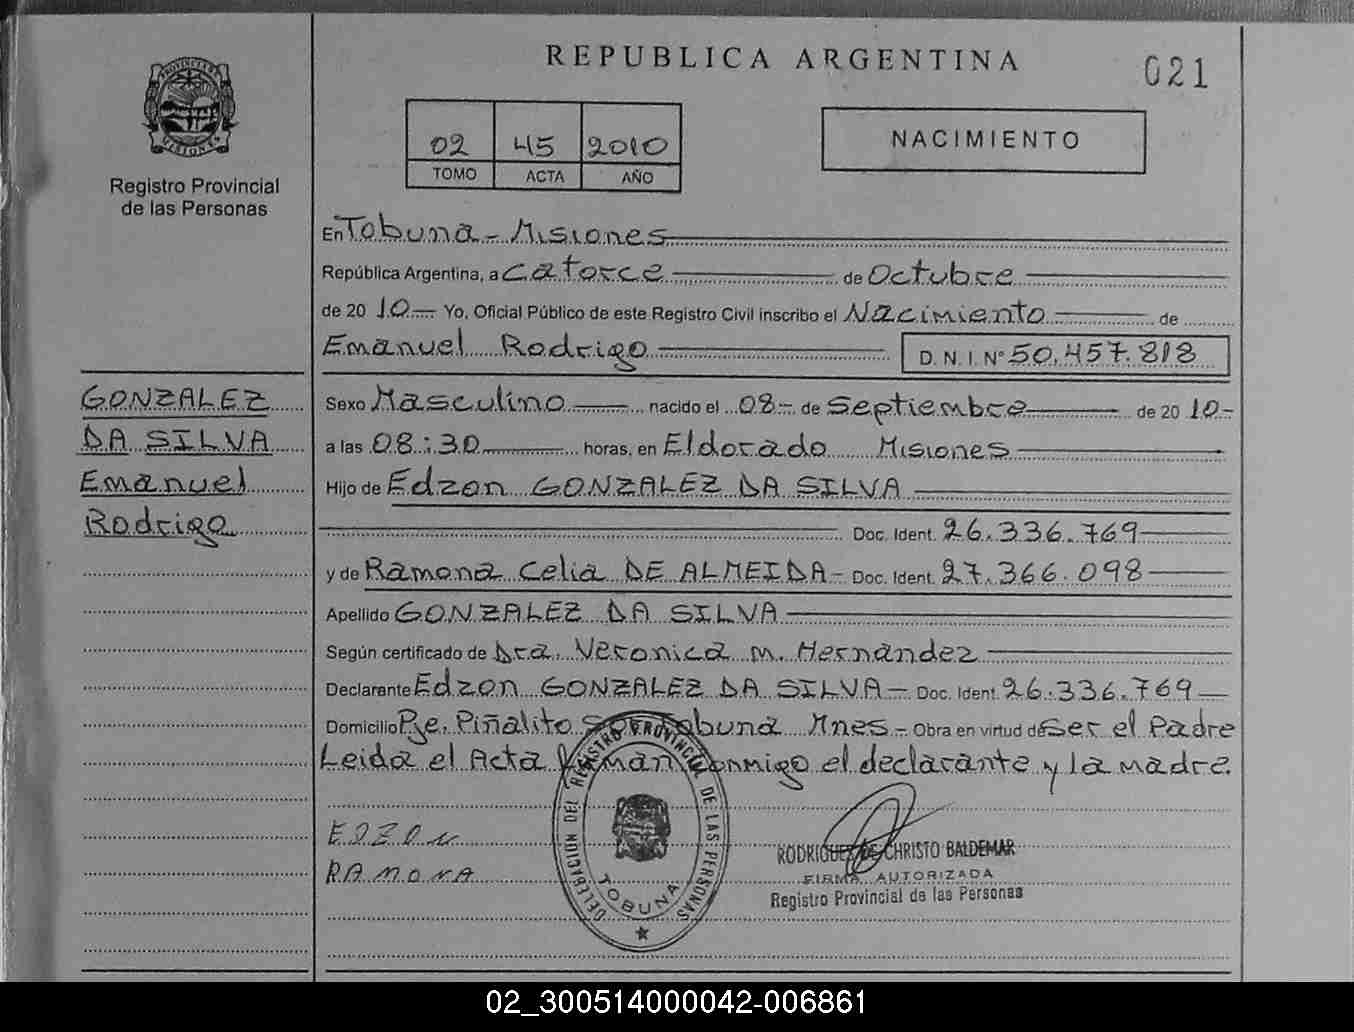 REPUBLICA ARGENTINA
021
PROVINCIA DE MISIONES
Registro Provincial
de las Personas
02 45 2010
TOMO ACTA AÑO
NACIMIENTO
En Tobuna - Misiones
República Argentina, a catorce de Octubre
de 20 10 Yo, Oficial Público de este Registro Civil inscribo el Nacimiento de
Emanuel Rodrigo D. N. I. Nº 50.457.818
GONZALEZ
DA SILVA
Emanuel
Rodrigo
Sexo Masculino nacido el 08- de Septiembre de 20 10-
a las 08:30 horas, en Eldorado Misiones
Hijo de Edzon GONZALEZ DA SILVA
Doc. Ident. 26.336.769
y de Ramona Celia DE ALMEIDA- Doc. Ident. 27.366.098
Apellido GONZALEZ DA SILVA
Según certificado de Dra. Veronica M. Hernández
Declarante Edzon GONZALEZ DA SILVA- Doc. Ident. 26.336.769
Domicilio Pje. Piñalito Tobuna Mnes.- Obra en virtud de Ser el Padre
Leida el Acta firman conmigo el declarante y la madre.
EDZON
RAMONA
DELEGACION DEL REGISTRO PROVINCIAL DE LAS PERSONAS
TOBUNA
RODRIGUEZ DE CHRISTO BALDEMAR
FIRMA AUTORIZADA
Registro Provincial de las Personas
02_300514000042-006861